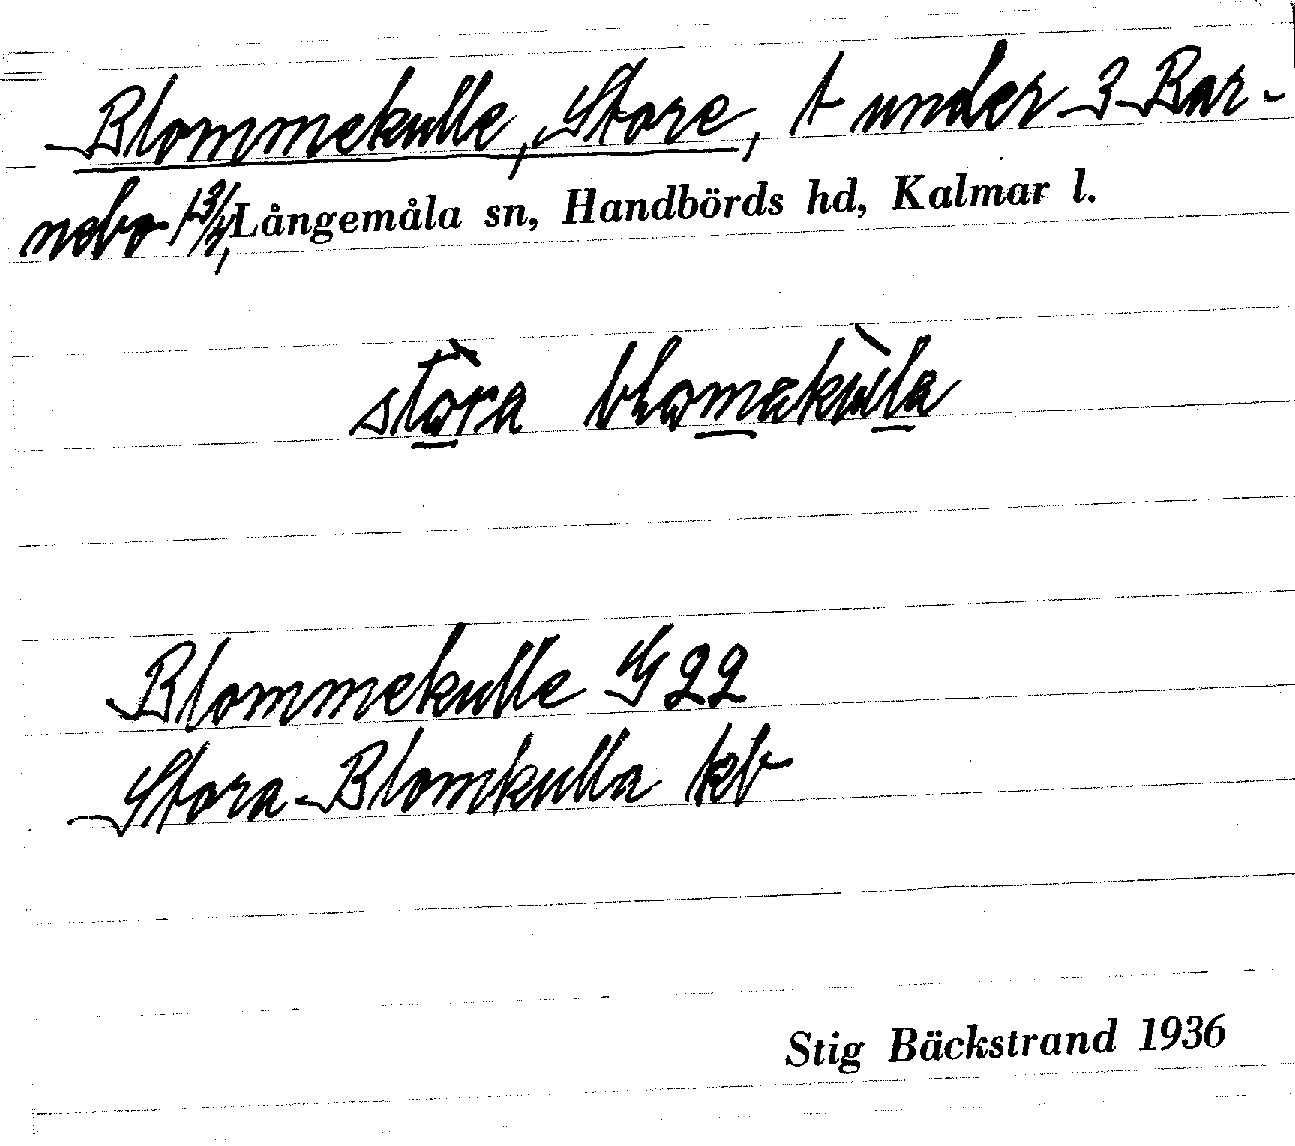 Blommekulle, Store, t under 3 Bar-
nebo 1 3/4, Långemåla sn, Handbörds hd, Kalmar l.
stòra blomækùla
Blommekulle G 22
Stora-Blomkulla kb
Stig Bäckstrand 1936